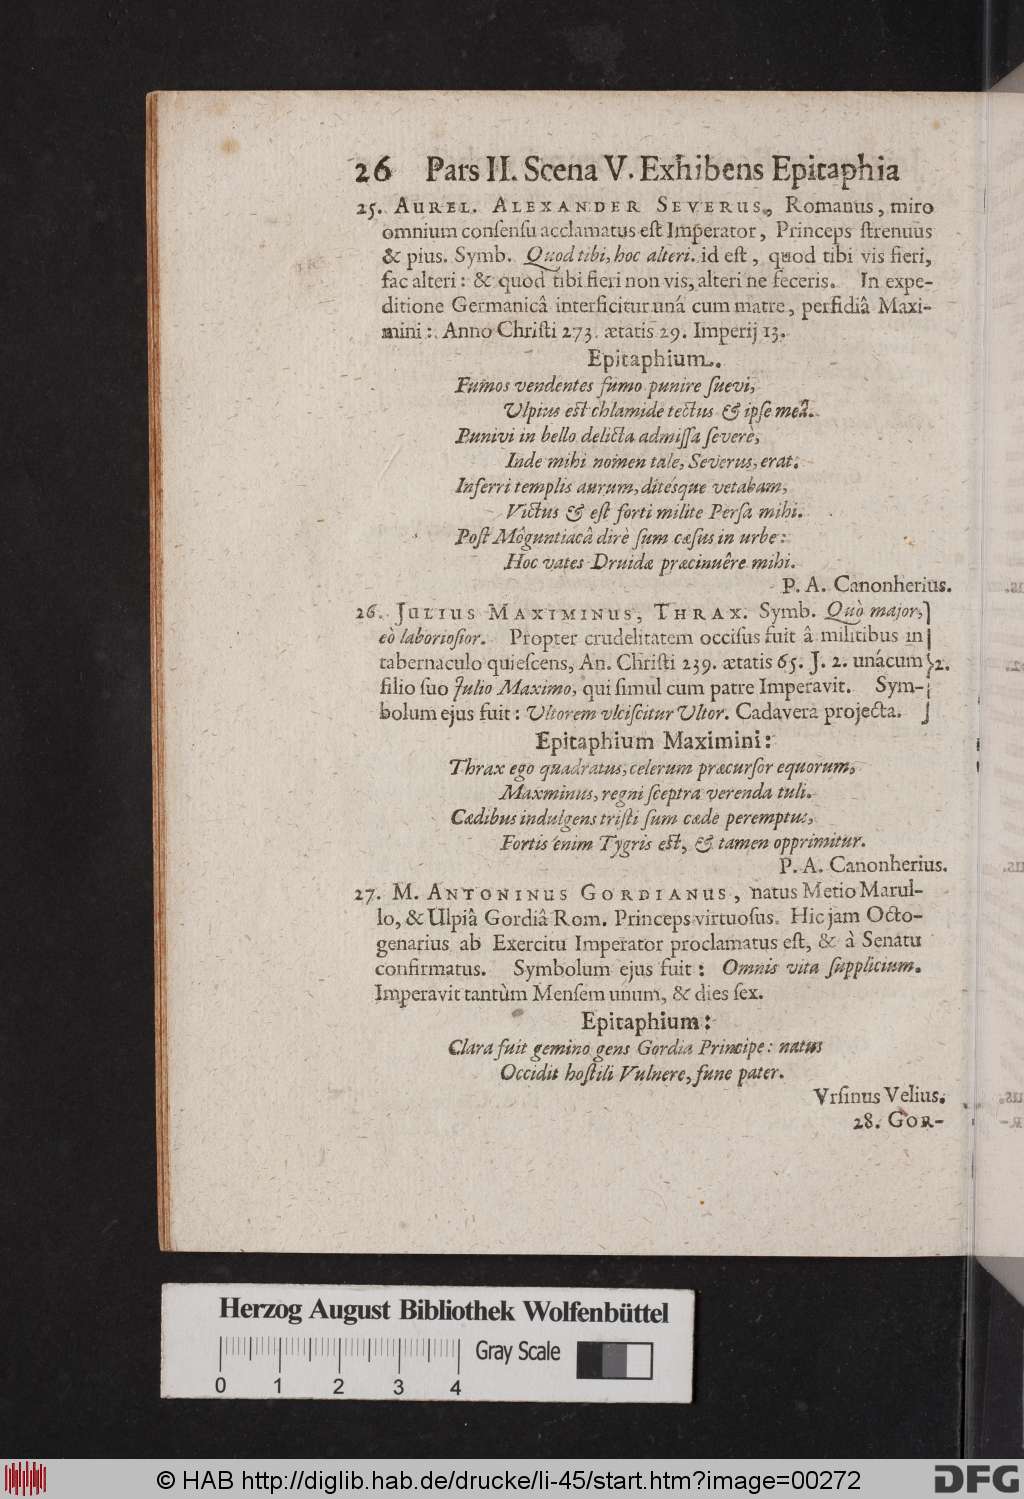 26 Pars II. Scena V. Exhibens Epitaphia
25. AUREL. ALEXANDER SEVERUS, Romanus, miro
omnium consensu acclamatus est Imperator, Princeps strenuus
& pius. Symb. Quod tibi, hoc alteri. id est, quod tibi vis fieri,
fac alteri: & quod tibi fieri non vis, alteri ne feceris. In expe-
ditione Germanicâ interficitur uná cum matre, perfidiâ Maxi-
mini: Anno Christi 273. ætatis 29. Imperij 13.
Epitaphium.
Fumos vendentes fumo punire suevi,
Ulpius est chlamide tectus & ipse meâ.
Punivi in bello delicta admissa severè,
Inde mihi nomen tale, Severus, erat.
Inferri templis aurum, ditésque vetabam,
Victus & est forti milite Persa mihi.
Post Môguntiacâ dirè sum cæsus in urbe:
Hoc vates Druidæ præcinuêre mihi.
P. A. Canonherius.
26. JULIUS MAXIMINUS, THRAX. Symb. Quò major,
eò laboriosior. Propter crudelitatem occisus fuit â militibus in
tabernaculo quiescens, An. Christi 239. ætatis 65. J. 2. unácum 2.
filio suo Julio Maximo, qui simul cum patre Imperavit. Sym-
bolum ejus fuit: Ultorem ulciscitur Ultor. Cadavera projecta.
Epitaphium Maximini:
Thrax ego quadratus, celerum præcursor equorum,
Maxminus, regni sceptra verenda tuli.
Cædibus indulgens tristi sum cæde peremptus,
Fortis enim Tygris est, & tamen opprimitur.
P. A. Canonherius.
27. M. ANTONINUS GORDIANUS, natus Metio Marul-
lo, & Ulpiâ Gordiâ Rom. Princeps virtuosus. Hic jam Octo-
genarius ab Exercitu Imperator proclamatus est, & à Senatu
confirmatus. Symbolum ejus fuit: Omnis vita supplicium.
Imperavit tantùm Mensem unum, & dies sex.
Epitaphium:
Clara fuit gemino gens Gordia Principe: natus
Occidit hostili Vulnere, fune pater.
Vrsinus Velius.
28. GOR-
Herzog August Bibliothek Wolfenbüttel
Gray Scale
0 1 2 3 4
© HAB http://diglib.hab.de/drucke/li-45/start.htm?image=00272
DFG